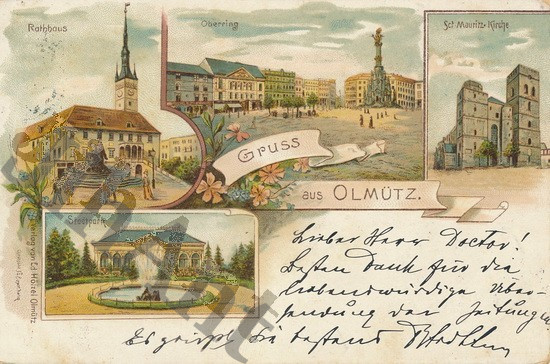 Rathhaus
Oberring
Sct Mauritz-Kirche
Gruss
aus OLMÜTZ.
Stadtpark
Verlag von Ed. Hölzel, Olmütz
Lieber Herr Doctor!
Besten Dank für die
liebenswürdige Über-
sendung der Zeitungen
Es grüsst Sie bestens